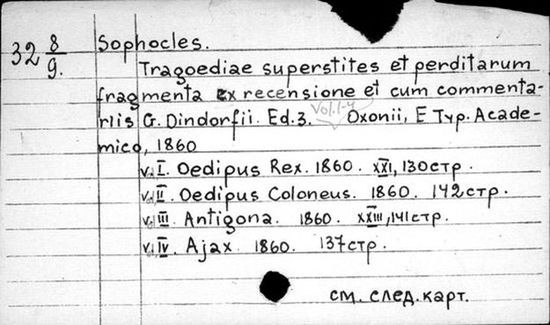 32 8/9.
Sophocles.
Tragoediae superstites et perditarum
fragmenta ex recensione et cum commenta-
riis G. Dindorfii. Ed. 3. Vol. 1-4 Oxonii, E Typ. Acade-
mico, 1860
v. I. Oedipus Rex. 1860. XXI, 130стр.
v. II. Oedipus Coloneus. 1860. 142стр.
v. III. Antigona. 1860. XXIII, 141стр.
v. IV. Ajax 1860. 137стр.
см. след. карт.